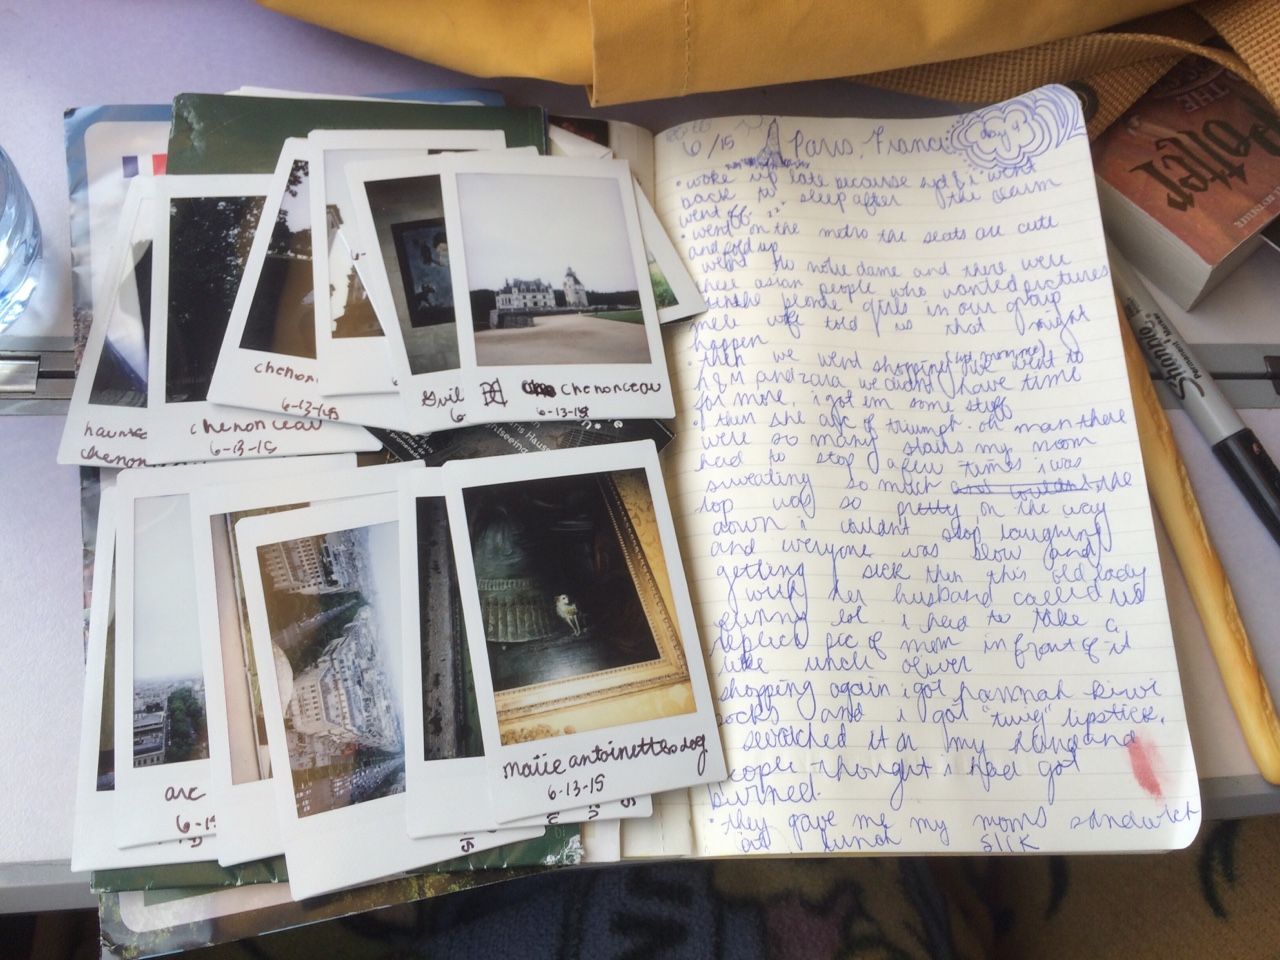 hausse
chenon
chenonceau
6-13-15
chenon
6-13-15
6
chenonceau
6-13-15
arc
6-1
marie antoinettes dog
6-13-15
15
6/15 Paris, France
day 9
• woke up late because syd & i went
back to sleep after the alarm
went off.
• went on the metro the seats are cute
and fold up
went to notre dame and there were
these asian people who wanted pictures
girls in our group
told us that might
happen
• then we went shopping we went to
h&m and zara we didnt have time
for more. i got em some stuff
• then the arc of triumph. oh man there
were so many stairs my mom
had to stop a few times i was
sweating so much and couldnt the
top was so pretty on the way
down i couldnt stop laughing
and everyone was slow and
getting sick then this old lady
with her husband called us
funny lol i had to take a
pic of mom in front of it
like uncle oliver
shopping again i got hannah kiwi
socks and i got lipstick.
swatched it on my hand and
people thought i had got
burned.
• they gave me my moms sandwich
at lunch SICK
THE
Potter
Sharpie
Permanent Marker